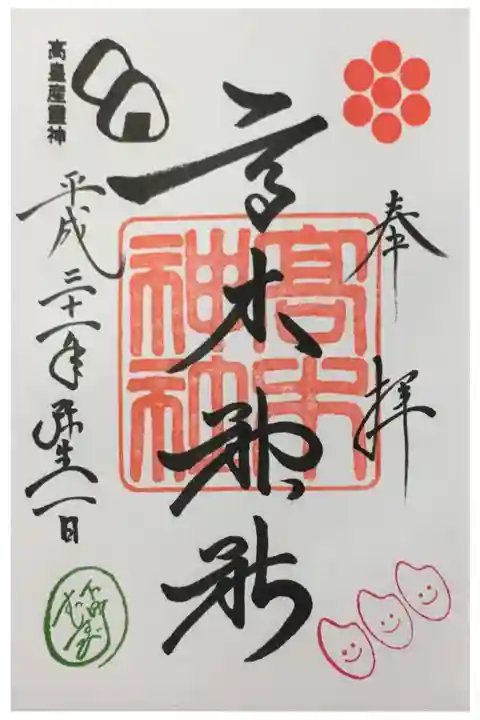 奉拝
髙木神社
高木神社
平成三十一年弥生一日
高皇産靈神